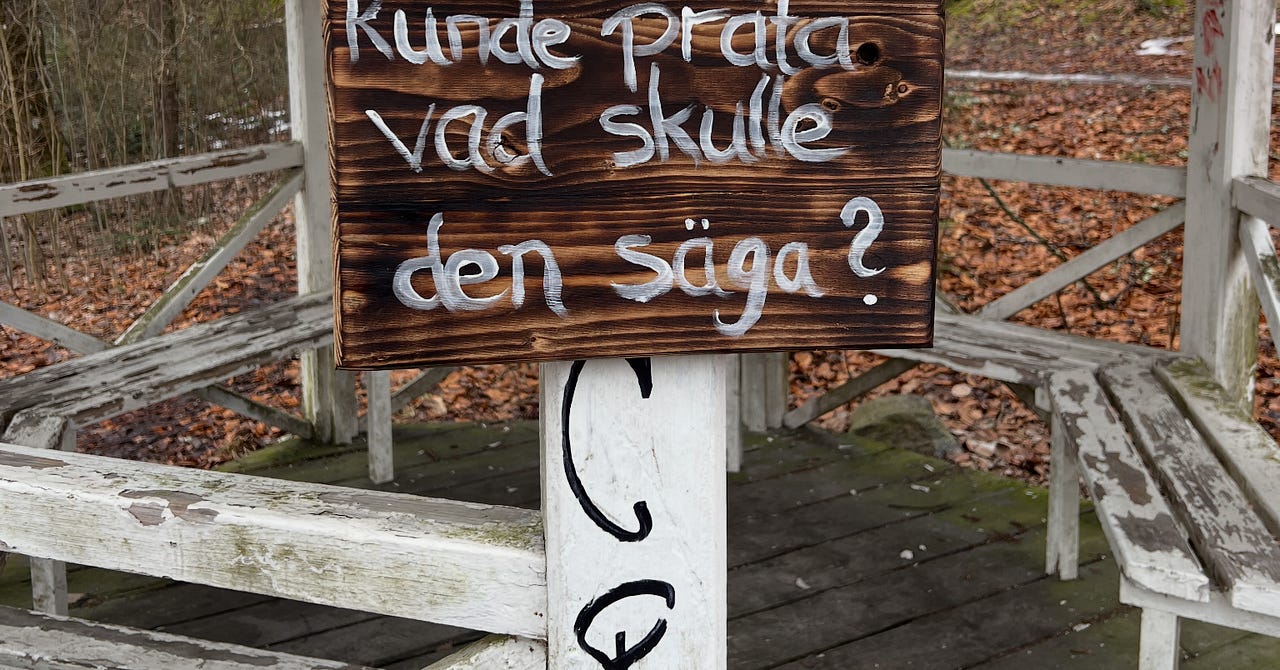 kunde prata
vad skulle
den säga?